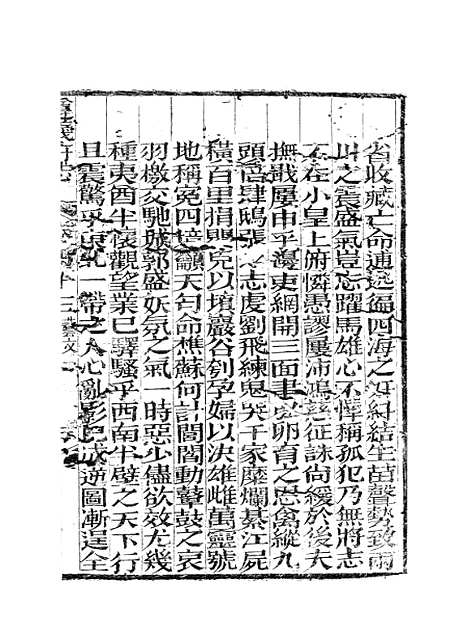 省收藏亡命逋逃徧四海之奸糾結生苗聲勢致兩
川之震盛氣豈忘躍馬雄心不憚稱孤犯乃無將志
不在小皇上俯憐愚謬屢沛鴻慈征誅尚緩於後夫
撫戢屢申乎邊吏網開三面書以卵育之恩禽縱九
頭倍肆鴟張志虔劉飛練鬼哭千家糜爛綦江屍
橫百里捐嬰兒以塡巖谷刳孕婦以決雄雌萬靈號
地稱冤四境籲天匄命樵蘇何計閭閻動鼙鼓之哀
羽檄交馳城郭盛妖氛之氣一時惡少儘欲效尤幾
種夷酋半懷觀望業已驛騷乎西南半壁之天下行
且震驚乎東北一帶之人心亂形已成逆圖漸逞全